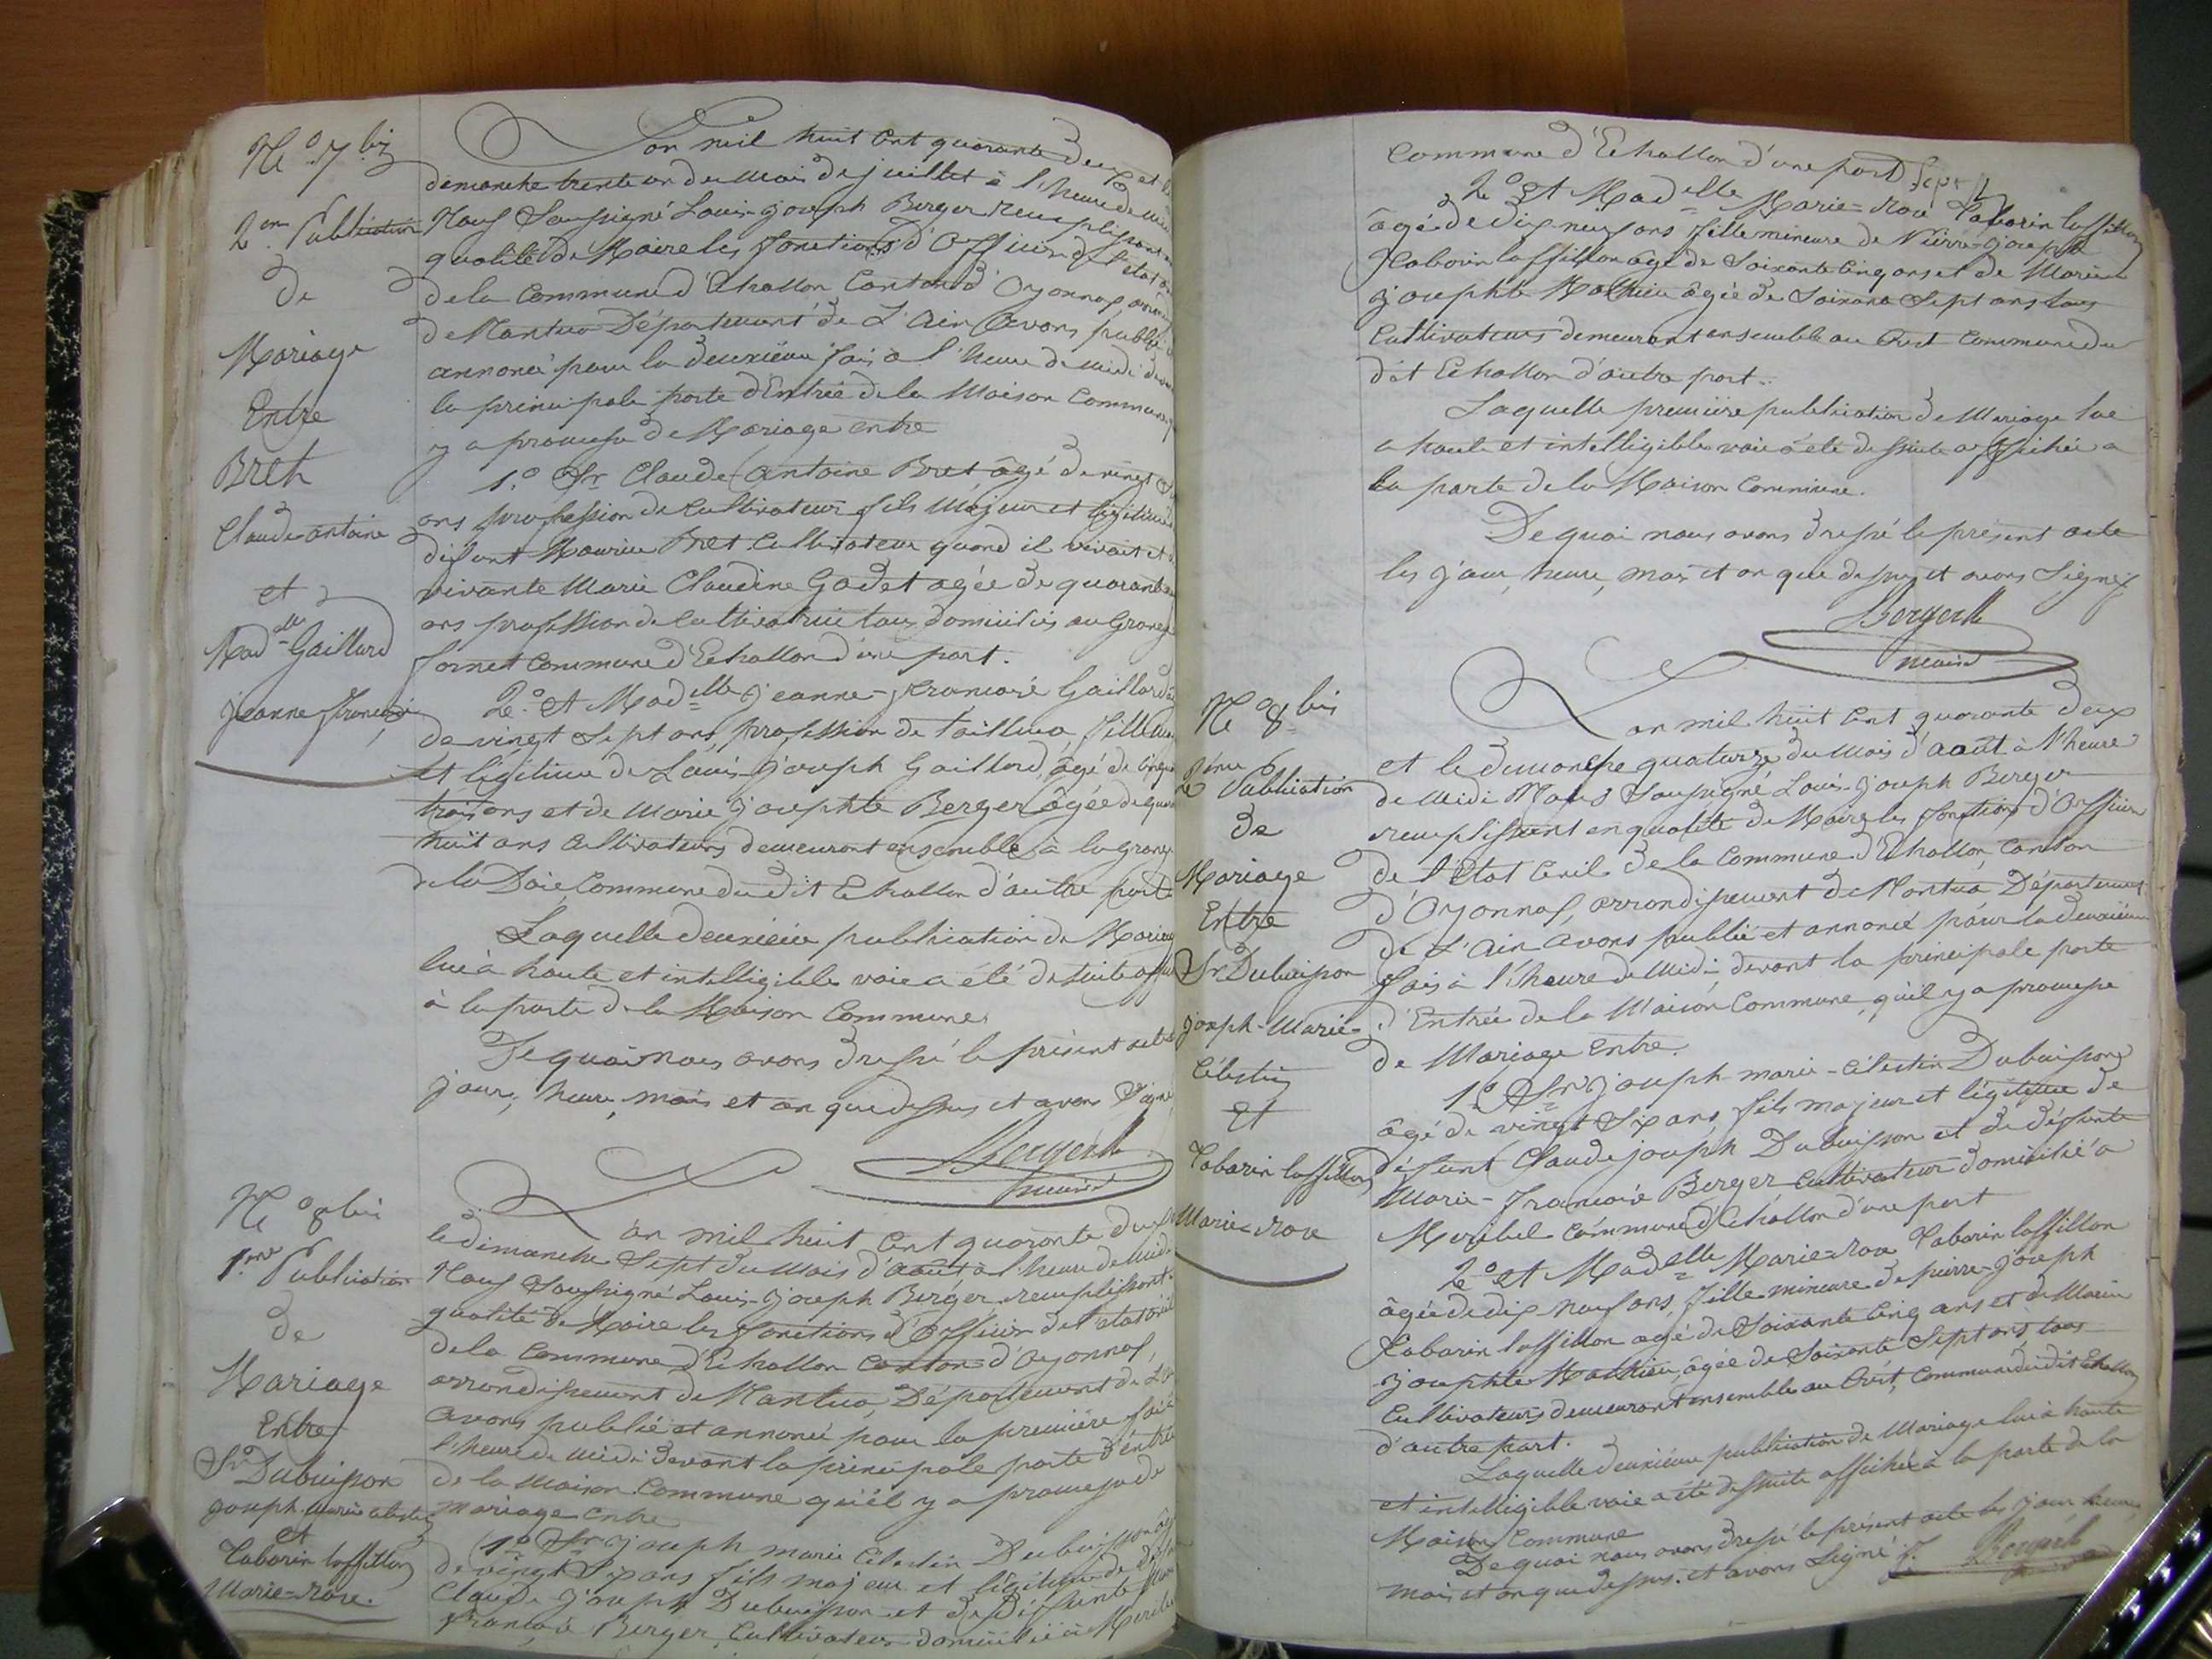 N.o 7 bis
2.me Publication
de
Mariage
Entre
Bret
Claude antoine
et
Mad.elle Gaillard
jeanne françoise
L'an mil huit cent quarante deux et le
dimanche trente un du mois de juillet à l'heure de midi
Nous Soussigné Louis-joseph Berger remplissant en
qualité de Maire les fonctions d'Officier de l'état
de la Commune d'Echallon Canton d'Oyonnax,
de Nantua Département de L'Ain Avons publié
annoncé pour la deuxième fois a l'heure de midi devant
la principale porte d'Entrée de la Maison Commune
y a promesse de Mariage entre
1.o Sr Claude Antoine Bret âgé de vingt
ans profession de cultivateur fils majeur et légitime
défunt Maurice Bret Cultivateur quand il vivait et
vivante Marie Claudine Godet agée de quarante
ans profession de cultivatrice tous domiciliés au Grange
fornet Commune d'Echallon d'une part.
2.o et Mad.elle jeanne-françoise Gaillard
de vingt Sept ans, profession de tailleuse, fille
et légitime de Louis-joseph Gaillard, âgé de
trois ans et de Marie josephte Berger âgée de
huit ans cultivateurs demeurant ensemble à la grange
de la Doie, Commune du dit Echallon d'autre part
Laquelle deuxième publication de Mariage
lue à haute et intelligible voie a été de suite
à la porte de la Maison Commune.
De quoi nous avons dressé le présent acte
jour, heure, mois et an que dessus et avons Signé
Berger
maire
N.o 8 bis
1.ère Publication
de
Mariage
Entre
Sr Dubuisson
joseph marie célestin
et
Tabarin lassillon
Marie-rose.
L'an mil huit cent quarante deux
le dimanche Sept du mois d'août à l'heure de midi
Nous Soussigné Louis-joseph Berger, remplissant
qualité de Maire les fonctions d'Officier de l'état civil
de la Commune d'Echallon canton d'Oyonnax,
arrondissement de Nantua, Département de L'
Avons publié et annoncé pour la première fois à
l'heure de midi devant la principale porte d'entrée
de la Maison Commune qu'il y a promesse de
mariage entre
1.o Sr joseph marie Célestin Dubuisson
de vingt Six ans fils majeur et légitime de
Claude joseph Dubuisson et de Défunte
françoise Berger, Cultivateur domicilié à
Commune d'Echallon d'une part
2.o et Mad.elle Marie-rose Tabarin lassillon
âgée de dix neuf ans fille mineure de Pierre-joseph
Tabarin lassillon âgé de Soixante Cinq ans et de Marie
josephte Mathieu âgée de Soixante Sept ans tous
Cultivateurs demeurant ensemble au Crêt Commune du
dit Echallon d'autre part.
Laquelle première publication de Mariage lue
a haute et intelligible voie a été de suite affichée a
la porte de la Maison Commune.
De quoi nous avons dressé le présent acte
les jour, heure, mois et an que dessus et avons Signé
Berger
maire
N.o 8 bis
2.ème Publication
de
Mariage
Entre
Sr Dubuisson
joseph-Marie-
Célestin
et
Tabarin lassillon
Marie-rose
L'an mil huit cent quarante deux
et le dimanche quatorze du mois d'août à l'heure
de midi Nous Soussigné Louis-joseph Berger
remplissant en qualité de Maire les fonctions d'Officier
de l'Etat Civil de la Commune d'Echallon, Canton
d'Oyonnax, arrondissement de Nantua Département
de L'Ain avons publié et annoncé pour la deuxième
fois à l'heure de Midi devant la principale porte
d'Entrée de la Maison Commune, qu'il y a promesse
de Mariage entre.
1.o Sr joseph-marie-célestin Dubuisson
âgé de vingt Six ans, fils majeur et légitime de
défunt Claude joseph Dubuisson et de défunte
Marie-françoise Berger, Cultivateur domicilié a
Commune d'Echallon d'une part
2.o et Mad.elle Marie-rose Tabarin lassillon
âgée de dix neuf ans, fille mineure de pierre-joseph
Tabarin lassillon agé de Soixante Cinq ans et de Marie
josephte Mathieu, âgée de Soixante Sept ans, tous
Cultivateurs demeurant ensemble au Crêt, Commune dudit Echallon
d'autre part.
Laquelle deuxième publication de Mariage lue à haute
et intelligible voie a été de suite affichée à la porte de la
Maison Commune
De quoi nous avons dressé le présent acte les jour heure
mois et an que dessus. et avons Signé
Berger